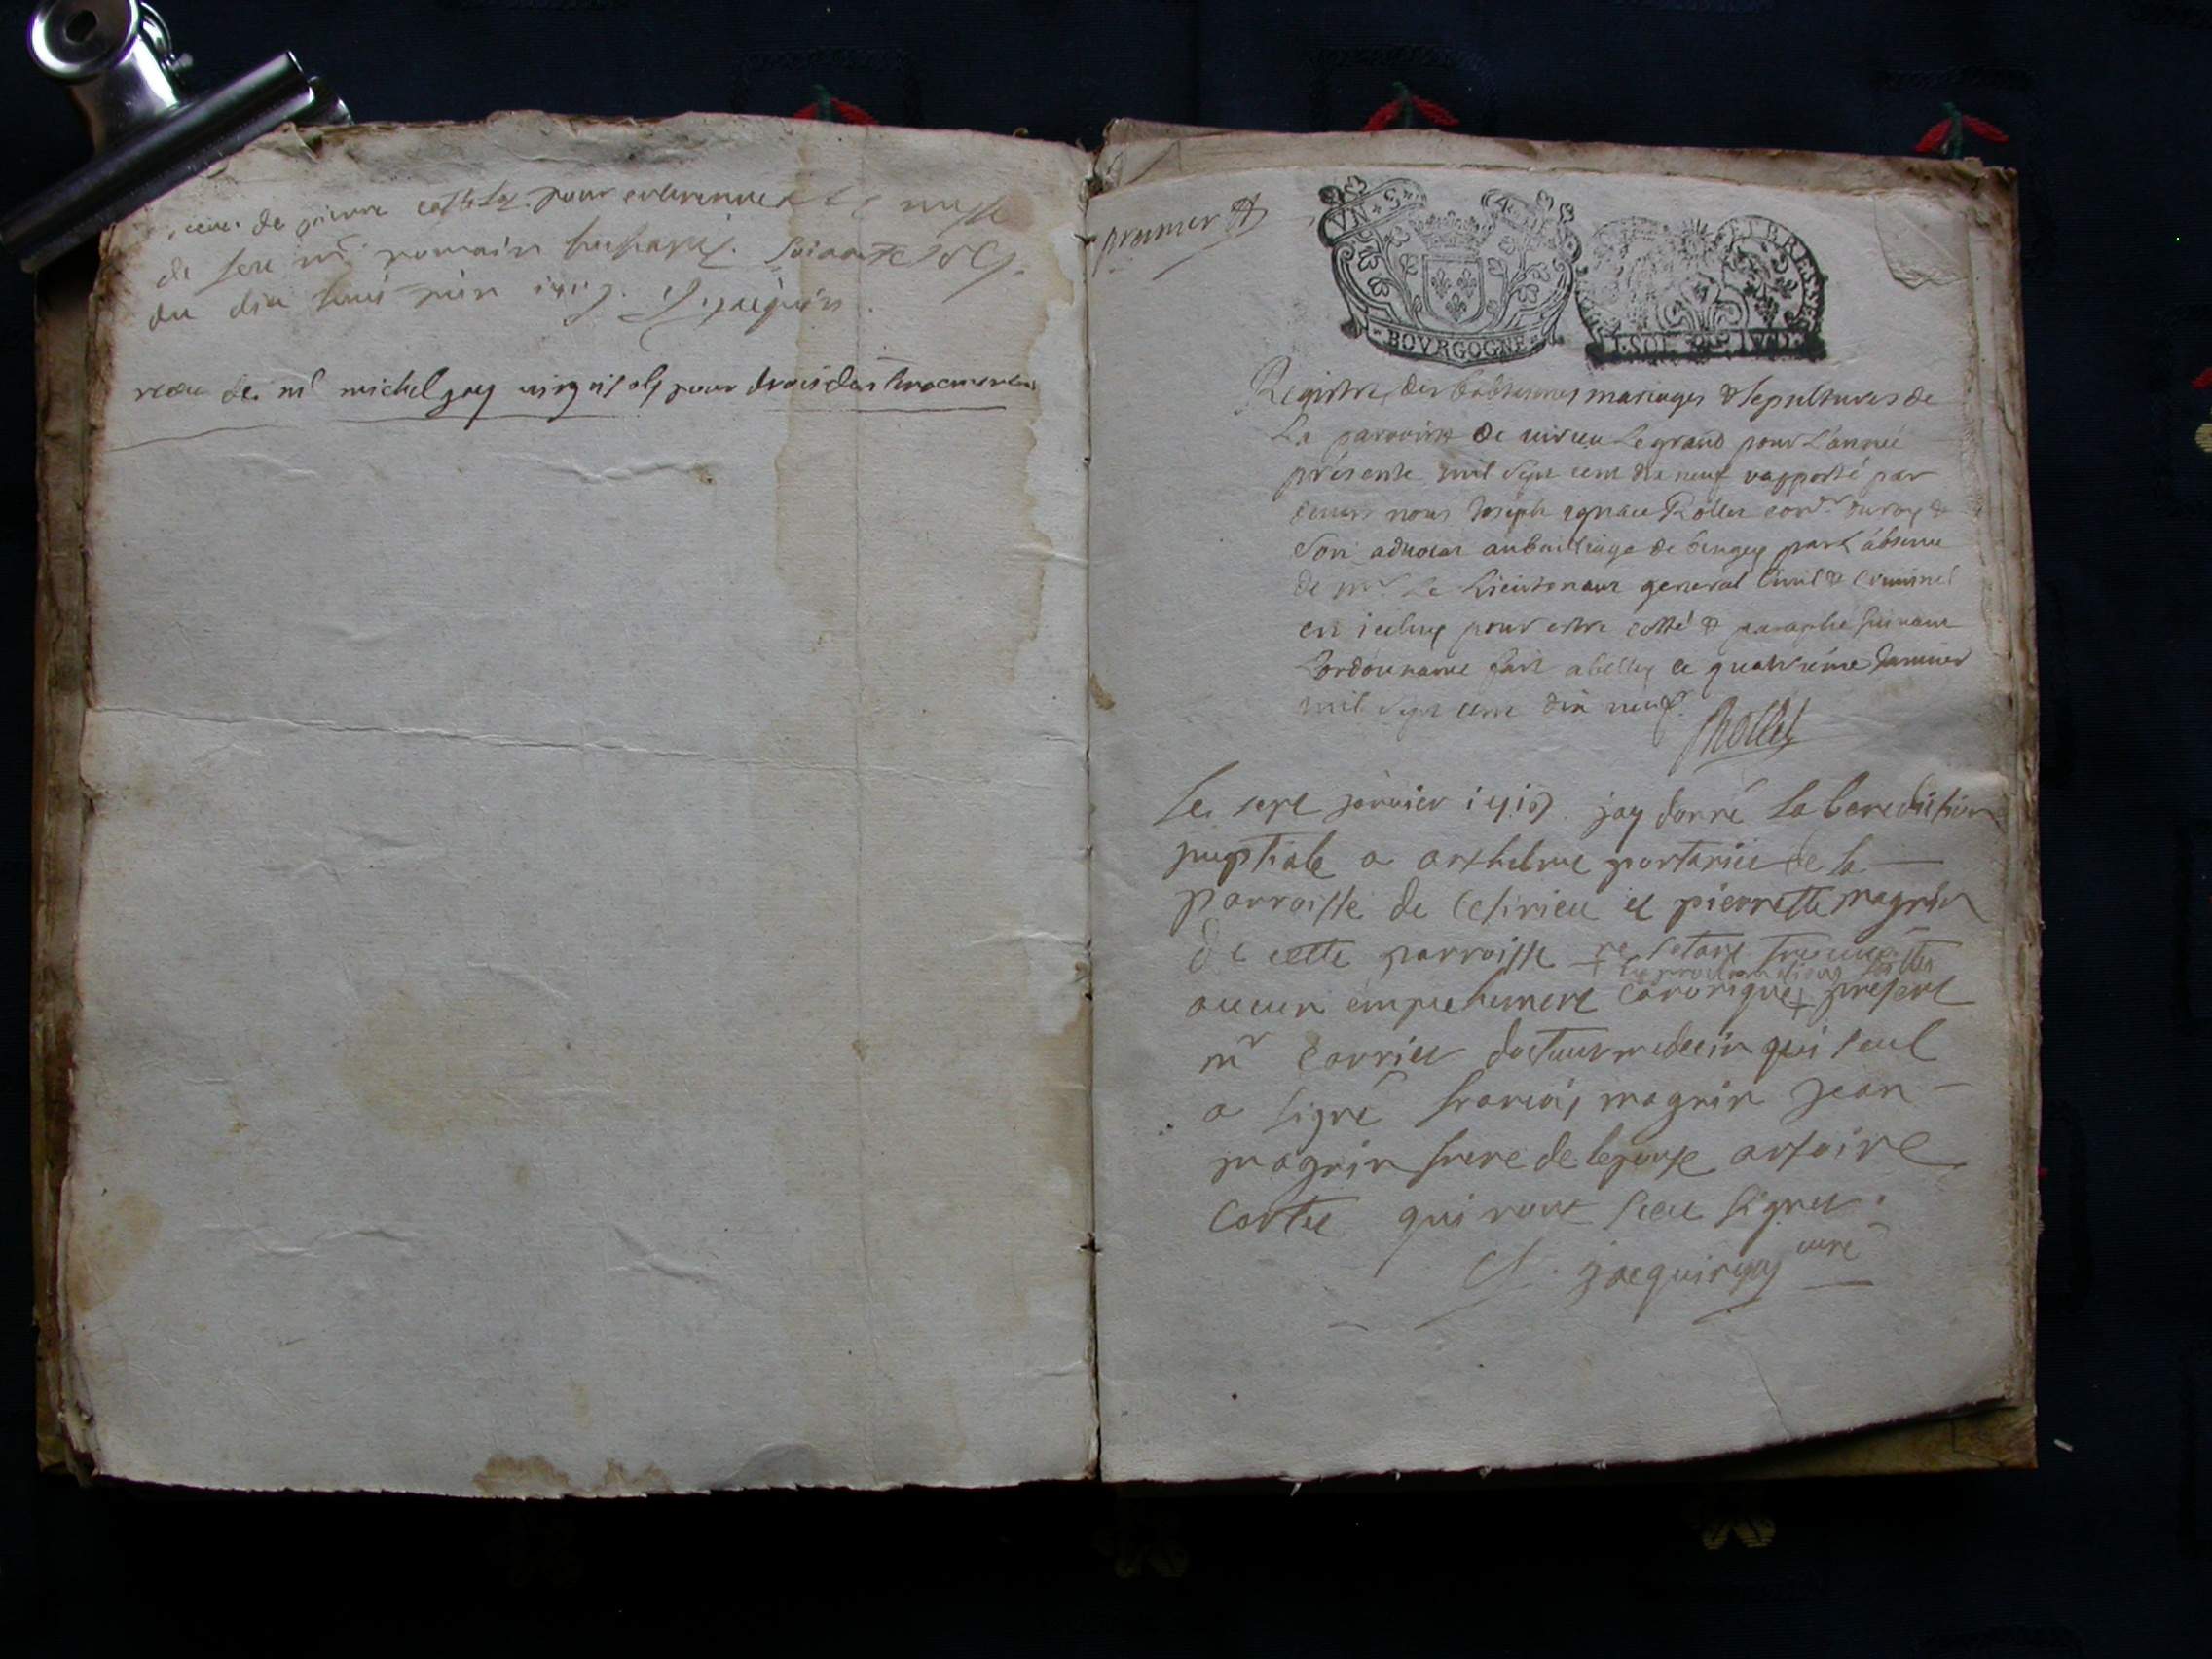 de pierre pour
de feu mr romain soixante sols
du dix
receu de mr michel jay vingt sols pour
premier
VN·S 4·D
BOVRGOGNE
ET BRESSE
1·SOL
Registre des babtesmes mariages & sepultures de
La parroisse de virieu Le grand pour L'année
présente mil sept cent dix neuf rapporté par
devers nous Joseph ignace Rollet conr du roy &
son advocat au bailliage de bugey par L'absence
de mr Le Lieutenant general Civil & Criminel
en iceluy pour estre cotté & paraphé suivant
L'ordonnance fait a belley ce quatrieme Janvier
mil sept cent dix neuf
Rollet
Le sept janvier 1719 jay donné la benediction
nuptiale a anthelme portanier de la
parroisse de Ceirieu et pierrette magnin
de cette parroisse ne setant trouvé
+ les proclamations faittes
aucun empechement canonique + present
mr carrier docteur medecin qui seul
a signé francois magnin jean
magnin frere de lepouse antoine
Cortet qui nont sceu signer.
Cl. jacquin curé